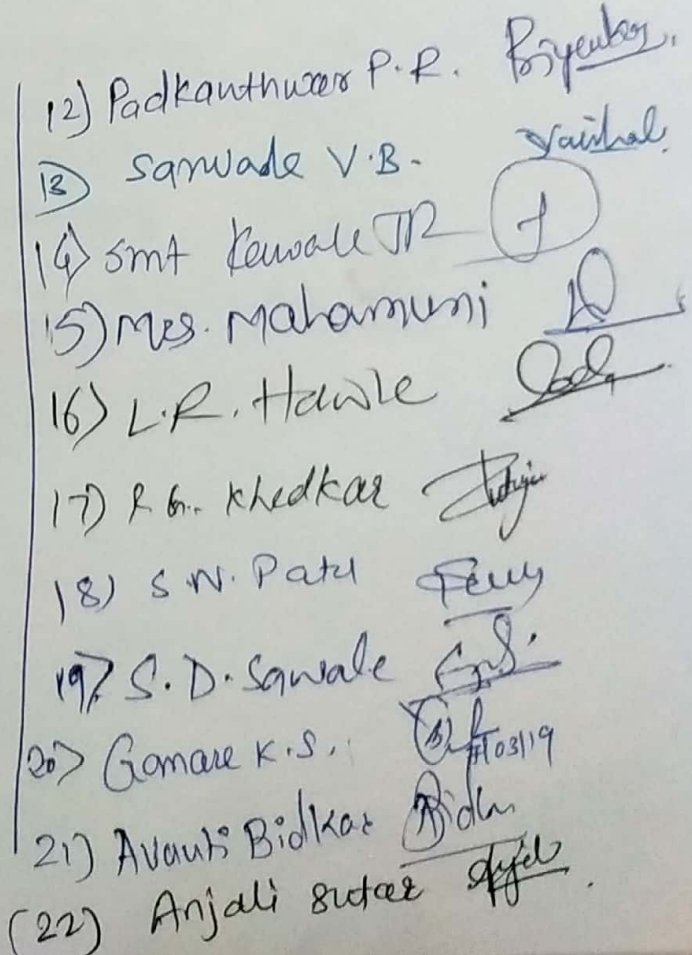 12) Padkanthwar P.R. Priyanka
13) Sarwade V.B. Vaishal
14) Smt Kawale JR
15) Mrs. Mahamuni
16) L.R. Hawle
17) R.G. Khedkar
18) S.N. Patil
19) S.D. Sawale
20) Gomare K.S. /03/19
21) Avanti Bidkar Bidkar
(22) Anjali Sutar